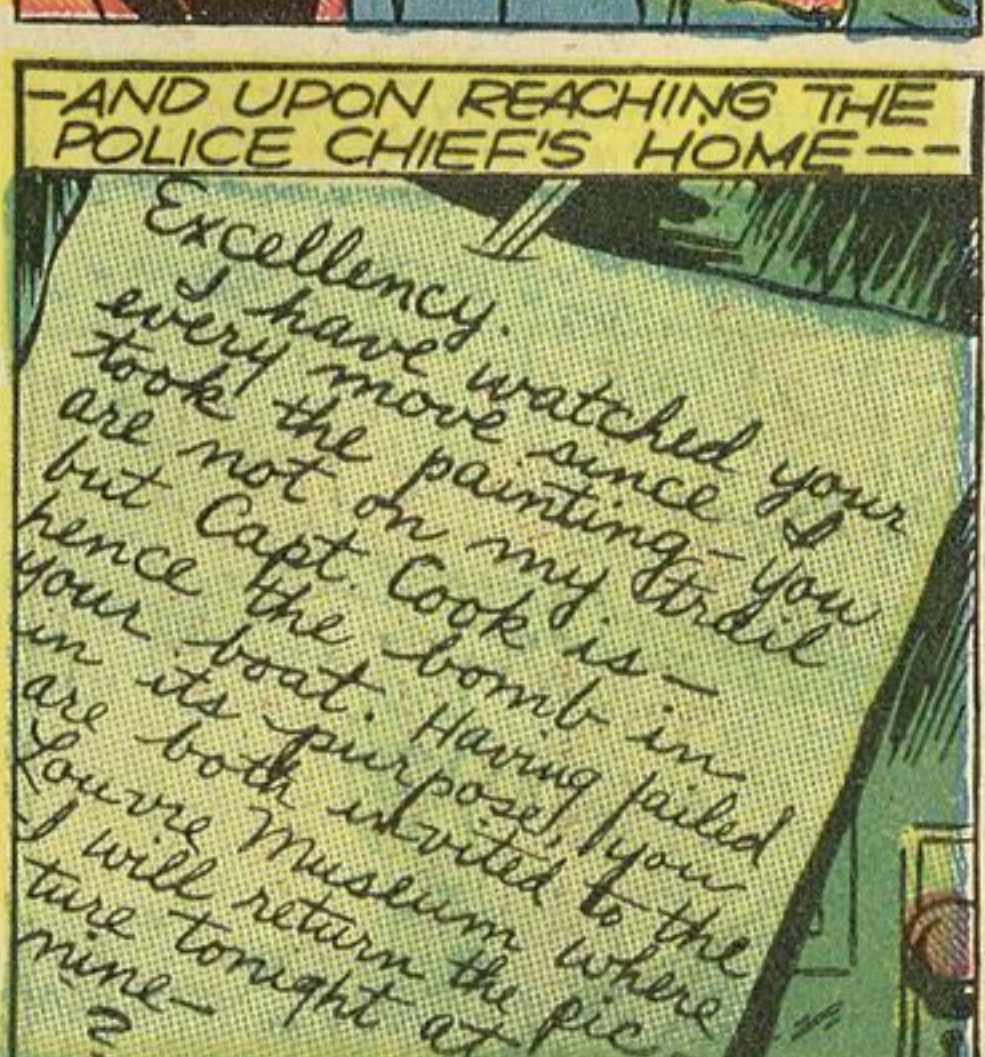 -AND UPON REACHING THE
POLICE CHIEF'S HOME--
Excellency.
I have watched your
every move since I
took the painting- you
are not on my trail
but Capt. Cook is-
hence the bomb in
your boat. Having failed
in its purpose, you
are both invited to the
Louvre Museum where
I will return the pic-
ture tonight at
nine-
?